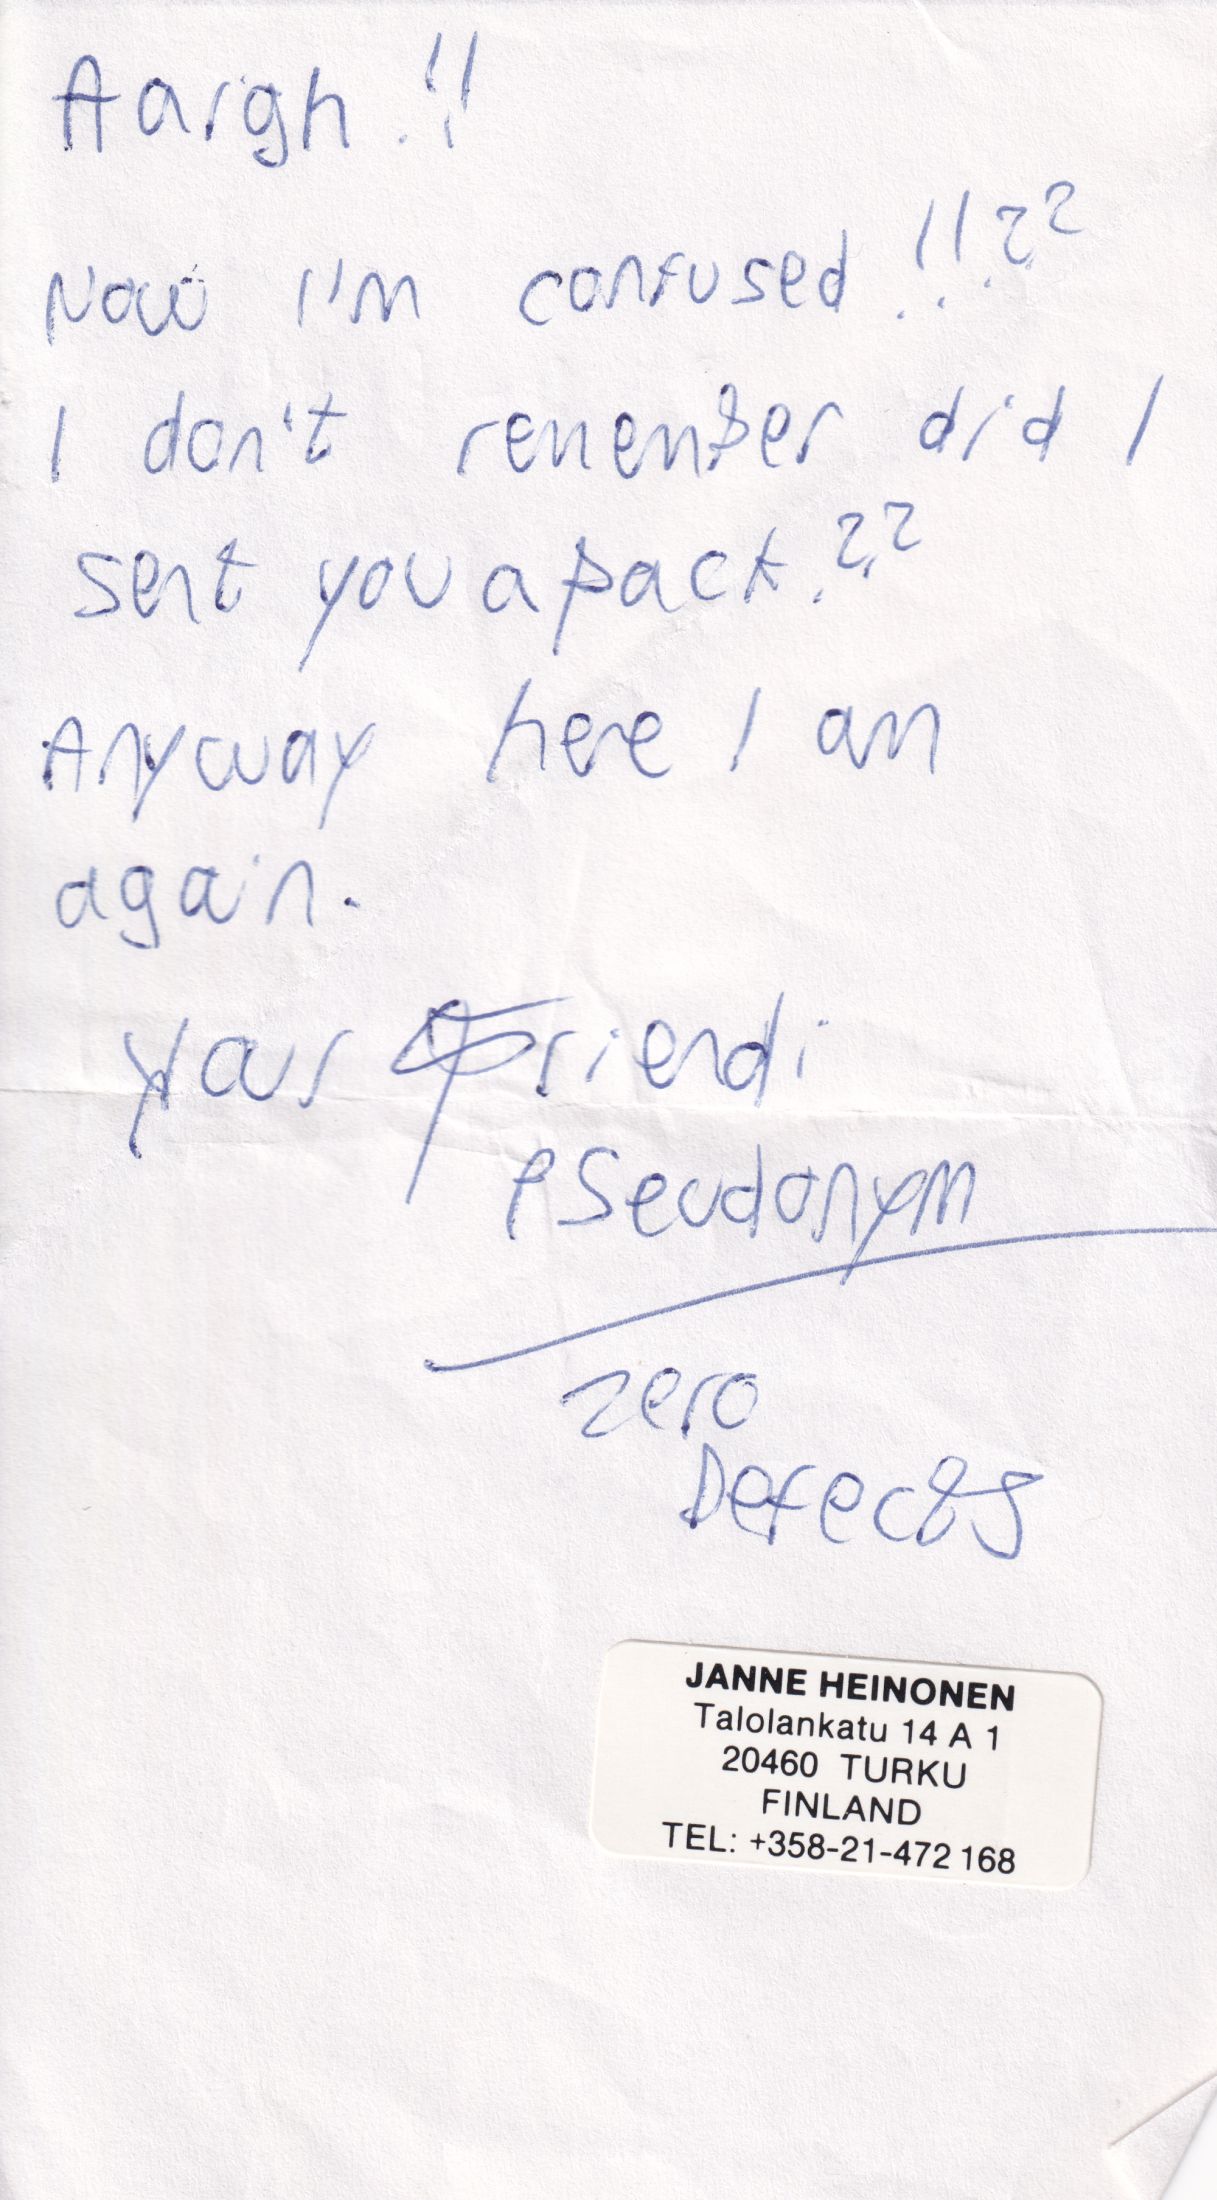 Aargh!!
Now I'm confused!!??
I don't remember did I
sent you a pack???
Anyway here I am
again.
your friend:
PSeudonym
zero
Defects
JANNE HEINONEN
Talolankatu 14 A 1
20460 TURKU
FINLAND
TEL: +358-21-472 168